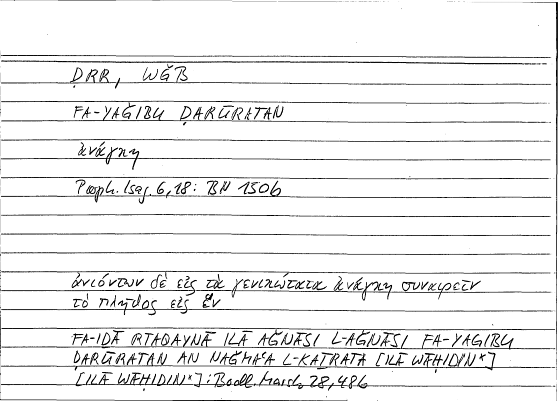 ḌRR, WǦB
FA-YAǦIBU ḌARŪRATAN
ἀνάγκη
Porph. Isag. 6,18: BN 150b
ἀνιόντων δὲ εἰς τὰ γενικώτατα ἀνάγκη συναιρεῖν
τὸ πλῆθος εἰς ἕν
FA-IḎĀ RTAQAYNĀ ILĀ AǦNĀSI L-AǦNĀSI FA-YAǦIBU
ḌARŪRATAN AN NAǦMAʿA L-KAṮRATA [ILĀ WĀḤIDIN*]
[ILĀ WĀḤIDIN*]: Bodl. Marsh 28,48b